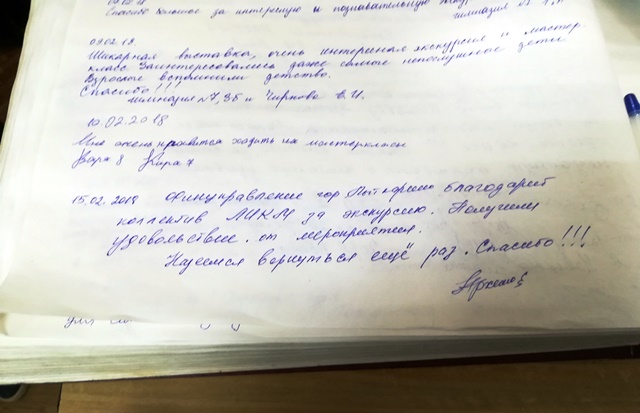 Спасибо большое за интересную и познавательную
гимназия №
09.02.18
Шикарная выставка, очень интересная экскурсия и мастер-
класс. Заинтересовались даже самые непослушные дети.
Взрослые вспомнили детство.
Спасибо!!!
гимназия №7, 3Б и Чиркова В.И.
10.02.2018
Мне очень нравится ходить на мастерклассы
Варя 8 Кира 7
15.02.2018 Финуправление гор. благодарит
коллектив за экскурсию. Получили
удовольствие от мероприятия.
Надеемся вернуться ещё раз. Спасибо!!!